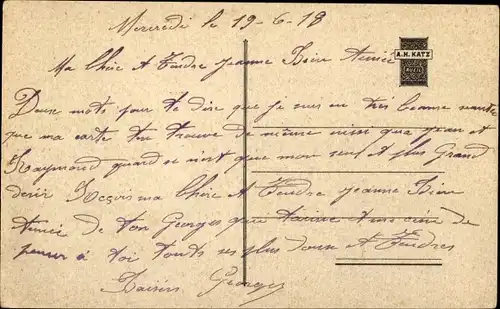 Mercredi le 19-6-18
A.H. KATZ
Ma Chère et Tendre Jeanne Bien Aimée
Deux mots pour te dire que je suis en très bonne santé
que ma carte ten trouve de même ainsi qua Jean et
Raymond quand et nest que mon seul et plus Grand
désir Reçois ma Chère et Tendre Jeanne Bien
Aimée de ton Georges que taime de
penser à toi touts ses plus doux et Tendres
Baisers Georges